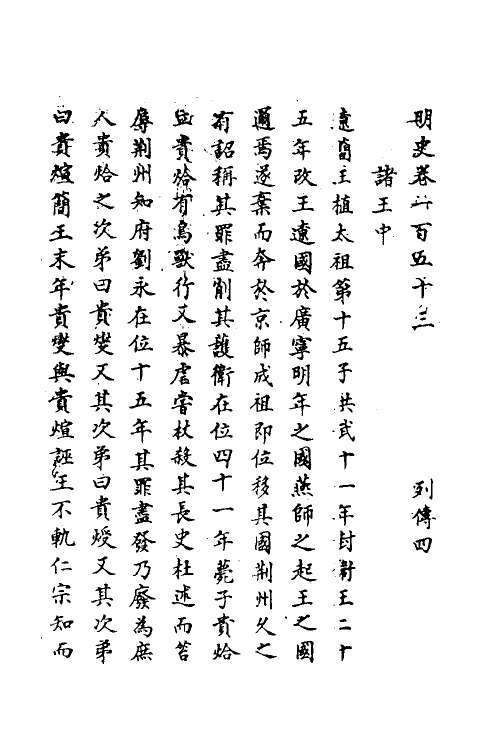 明史卷一百五十三　列傳四
諸王中
遼簡王植太祖第十五子共武十一年封衛王二十
五年改王遼國於廣寧明年之國燕師之起王之國
邇焉遂棄而奔於京師成祖即位移其國荆州久之
有詔稱其罪盡削其護衛在位四十一年薨子貴烚
㞐貴烚有鳥獸行又暴虐嘗杖殺其長史杜述而笞
辱荆州知府劉永在位十五年其罪盡發乃廢為庶
人貴烚之次弟曰貴燮又其次弟曰貴煖又其次弟
曰貴煊簡王末年貴燮與貴煊誣王不軌仁宗知而